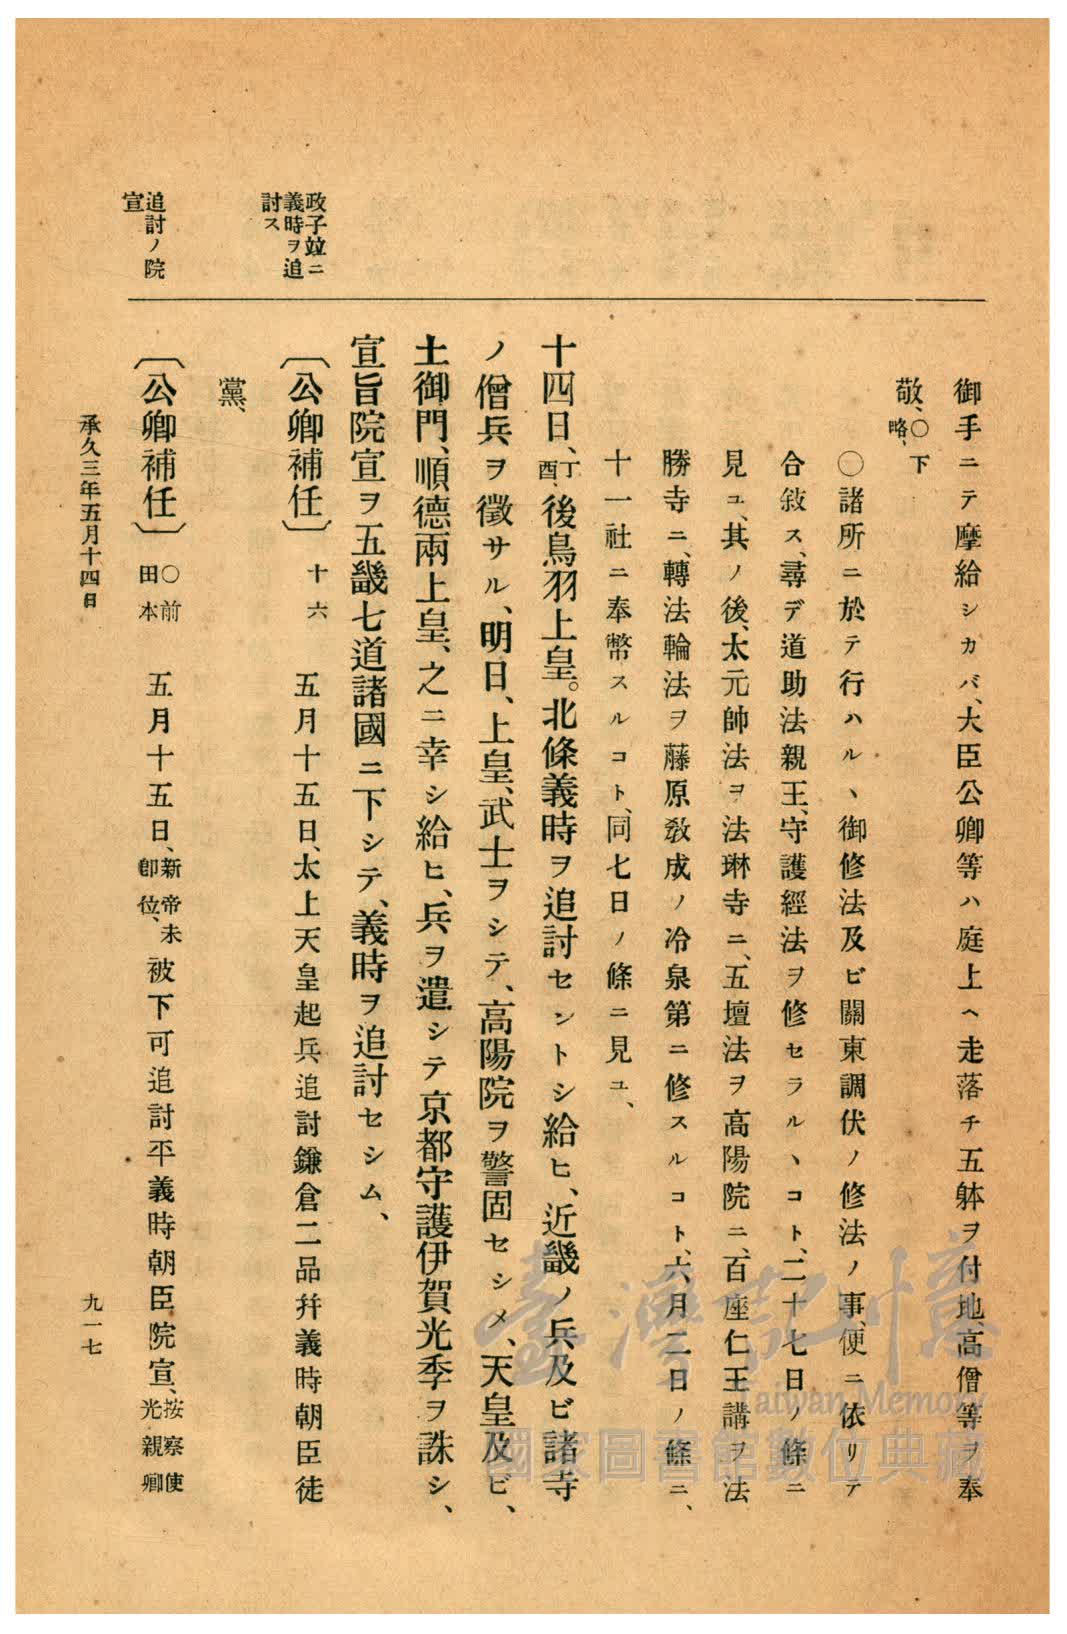 御手ニテ摩給シカバ、大臣公卿等ハ庭上ヘ走落チ五躰ヲ付地、高僧等ヲ奉
敬、〇下略、
〇諸所ニ於テ行ハル、御修法及ビ關東調伏ノ修法ノ事、便ニ依リテ
合敍ス、尋デ道助法親王、守護經法ヲ修セラル、コト、二十七日ノ條ニ
見ユ、其ノ後、太元帥法ヲ法琳寺ニ、五壇法ヲ高陽院ニ、百座仁王講ヲ法
勝寺ニ、轉法輪法ヲ藤原教成ノ冷泉第ニ修スルコト、六月二日ノ條ニ、
十一社ニ奉幣スルコト、同七日ノ條ニ見ユ、
十四日、丁酉、後鳥羽上皇。北條義時ヲ追討セントシ給ヒ、近畿ノ兵及ビ諸寺
ノ僧兵ヲ徵サル、明日、上皇、武士ヲシテ、高陽院ヲ警固セシメ、天皇及ビ、
土御門、順德兩上皇、之ニ幸シ給ヒ、兵ヲ遣シテ京都守護伊賀光季ヲ誅シ、
宣旨院宣ヲ五畿七道諸國ニ下シテ、義時ヲ追討セシム、
政子竝ニ
義時ヲ追
討ス
〔公卿補任〕十六 五月十五日、太上天皇起兵追討鎌倉二品幷義時朝臣徒
黨、
追討ノ院
宣
〔公卿補任〕〇前田本 五月十五日、新帝未卽位、被下可追討平義時朝臣院宣、按察使光親卿
承久三年五月十四日
九一七
臺灣記憶
Taiwan Memory
國家圖書館數位典藏